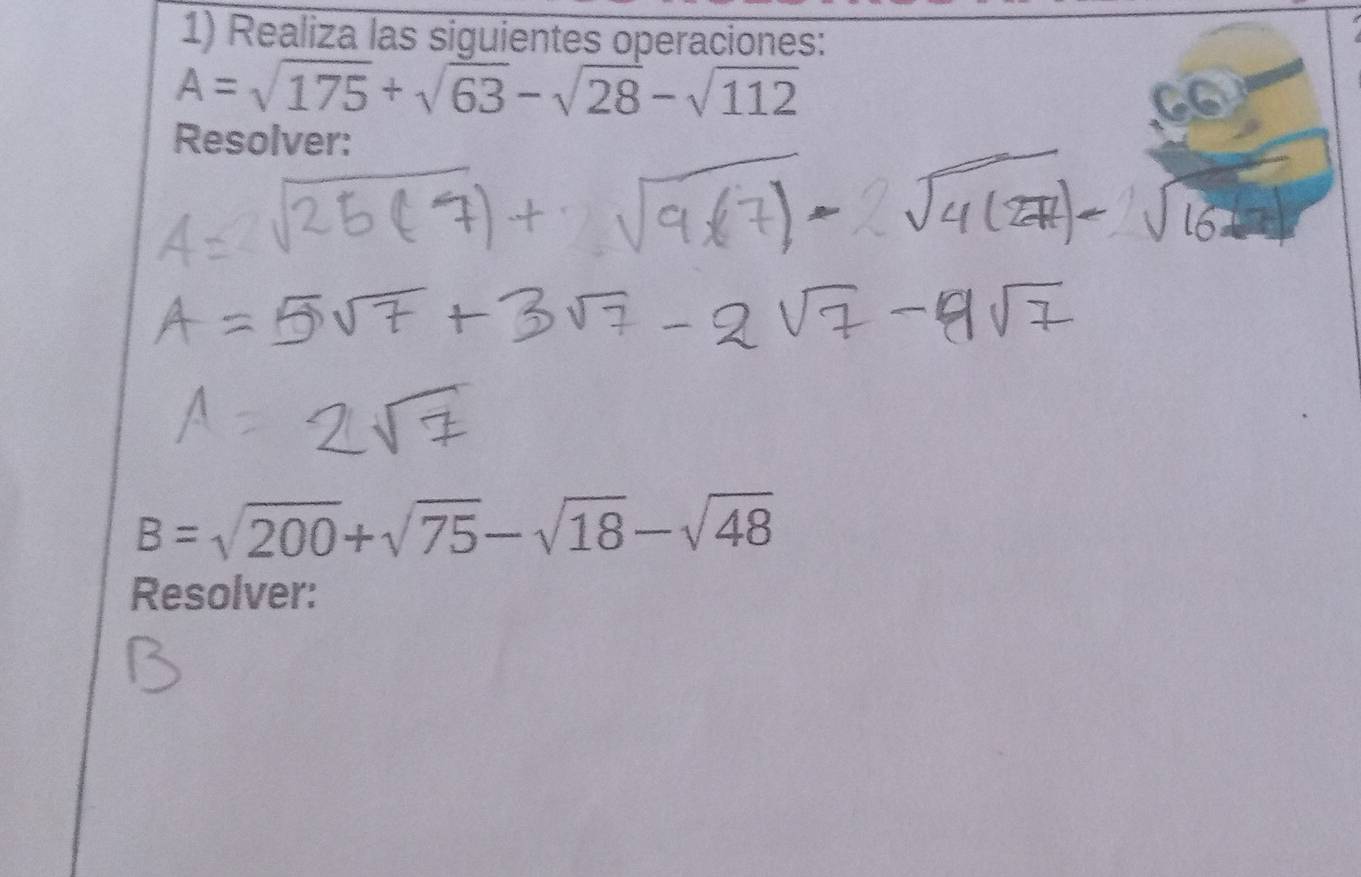 1) Realiza las siguientes operaciones:
A = √175 + √63 - √28 - √112
Resolver:
A = √25(7) + √9(7) - √4(7) - √16(7)
A = 5√7 + 3√7 - 2√7 - 4√7
A = 2√7
B = √200 + √75 - √18 - √48
Resolver:
B